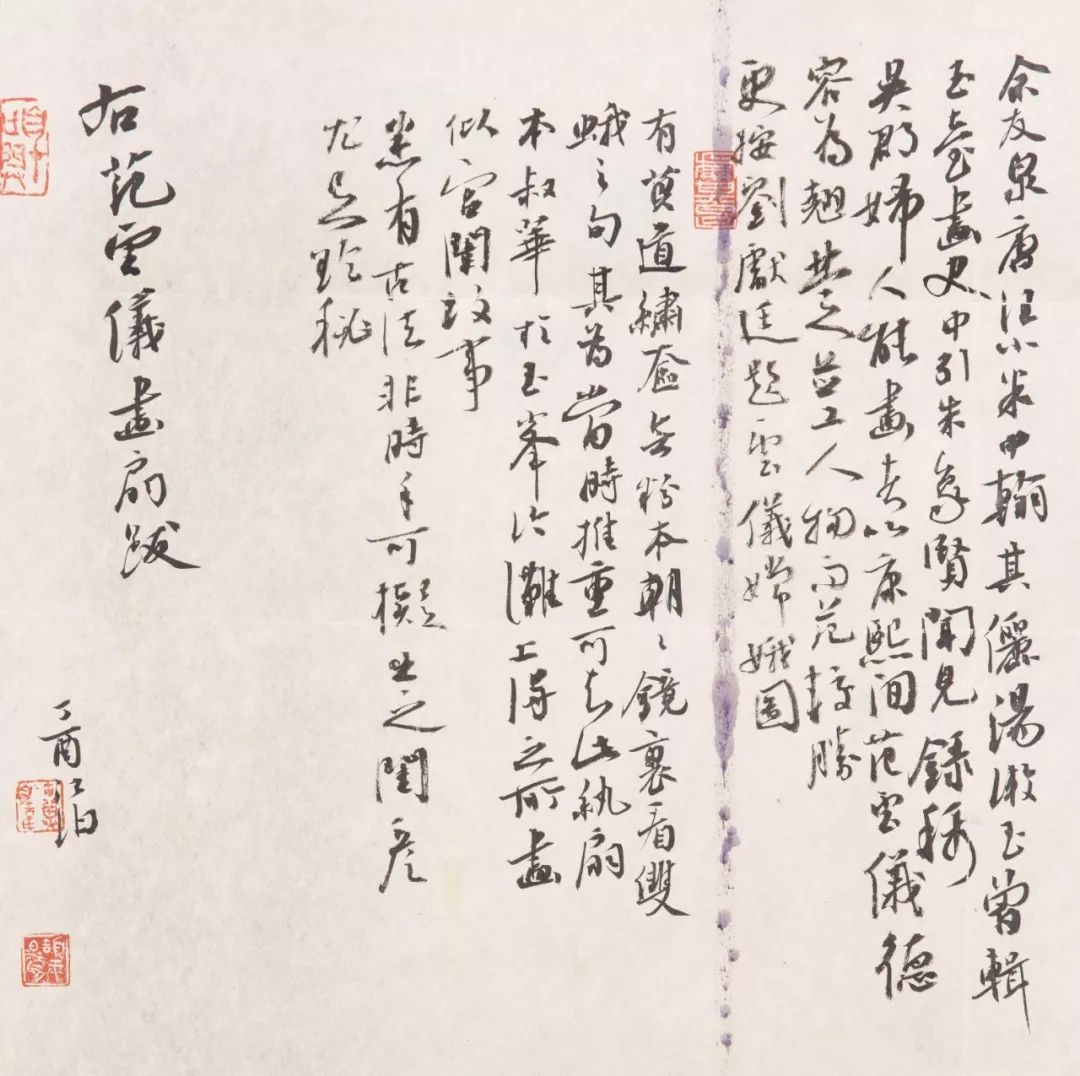 余友泉唐汪小米中翰其儷湯漱玉曾輯
玉臺畫史中引朱象賢聞見錄稱
吳郡婦人能畫者以康熙間范雲儀德
容為翹楚之工人物而范較勝
更按劉獻廷題雲儀嫦娥圖
有莫道繡奩無粉本朝々鏡裏看雙
蛾之句其為當時推重可知此紈扇
本叔華於玉峯冷灘上得之所畫
似宮闈故事
悉有古法非時手可擬出之閨彥
尤足珍秘
右范雲儀畫扇跋
丁酉